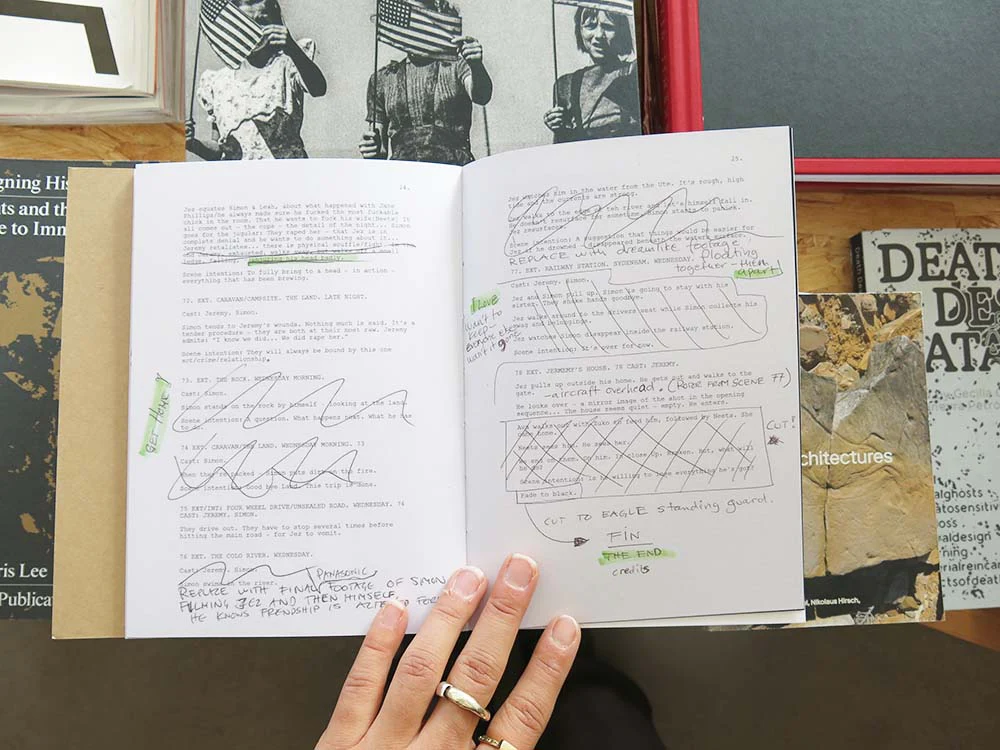 24.
Jez equates Simon & Leah, about what happened with Jane
Phillips/he always made sure he fucked the most fuckable
chick in the room. That he wants to fuck his wife(Neets) It
all comes out - the cops - the detail of the night... Simon
goes for the jugular: They raped her - that Jez is in
complete denial and he wants to do something about it...
Jeremy retaliates... there is physical scuffle/fight.
his head badly.
Scene intention: To fully bring to a head - in action -
everything that has been brewing.
72. EXT. CARAVAN/CAMPSITE. THE LAND. LATE NIGHT.
Cast: Jeremy. Simon.
Simon tends to Jeremy's wounds. Nothing much is said. It's a
tender procedure - they are both at their most raw. Jeremy
admits: "I know we did... We did rape her."
Scene intention: They will always be bound by this one
act/crime/relationship.
73. EXT. THE ROCK. WEDNESDAY MORNING.
Cast: Simon.
Simon stands on the rock by himself looking at the land.
Scene intention: A question. What happens next. What he has
to do.
GET HOME
74 EXT. CARAVAN/THE LAND. WEDNESDAY MORNING. 73
Cast: Simon.
packed - Simon puts dirt on the fire.
Scene intention: Good bye Land. This trip is done.
75 EXT/INT: FOUR WHEEL DRIVE/UNSEALED ROAD. WEDNESDAY. 74
CAST: JEREMY. SIMON.
They drive out. They have to stop several times before
hitting the main road - for Jez to vomit.
76 EXT. THE COLD RIVER. WEDNESDAY.
Cast: Jeremy. Simon.
Simon swims in the river.
PANASONIC
REPLACE WITH FINAL FOOTAGE OF SIMON
FILMING JEZ AND THEN HIMSELF.
HE KNOWS FRENDSHIP IS
25.
Jez watches him in the water from the Ute. It's rough, high
tide and the currents are strong.
Jez walks to the edge teh river and let's himself fall in.
He doesn't resurface for sometime. Simon starts to panic.
Jez resurfaces.
Scene intention: A suggestion that things would be easier for
Jez drowned - disappeared beneath the water surface.
REPLACE WITH drewlite footage
Plodding
together - them
apart
77. EXT. RAILWAY STATION. SYDENHAM. WEDNESDAY.
Cast: Jeremy. Simon.
Jez and Simon pull up. Simon is going to stay with his
sister. They shake hands goodbye.
Jez walks around to the drivers seat while Simon collects his
swag and belongings.
Jez watches Simon disappear inside the railway station.
Scene intention: It's over for now.
I Love
want to
keep
everyone else
want it gone
78 EXT. JERMEMY'S HOUSE. 78 CAST: JEREMY.
Jez pulls up outside his home. He gets out and walks to the
gate.
- aircraft overhead. (MORE FROM SCENE 77)
He looks over - a mirror image of the shot in the opening
sequence... The house seems quiet - empty. He enters.
Ava walks out with Zuko on food him, followed by Neets. She
Neets sees him. He sees her.
We end on them. On him. In close up. Broken. But, what will
he do?
Scene intention: is he willing to lose everything he's got?
Fade to black.
CUT!
CUT TO EAGLE standing guard.
FIN
THE END
credits
gning His
ts and th
e to Imm
ris Lee
Publica
DEATH
DE
ATA
chitectures
, Nikolaus Hirsch,
alghosts
atosensitiv
raldesign
erialreincar
ctsofdeat